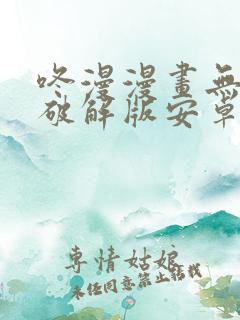 咚漫漫畫無
破解版安卓
專情姑娘
未經同意禁止轉載